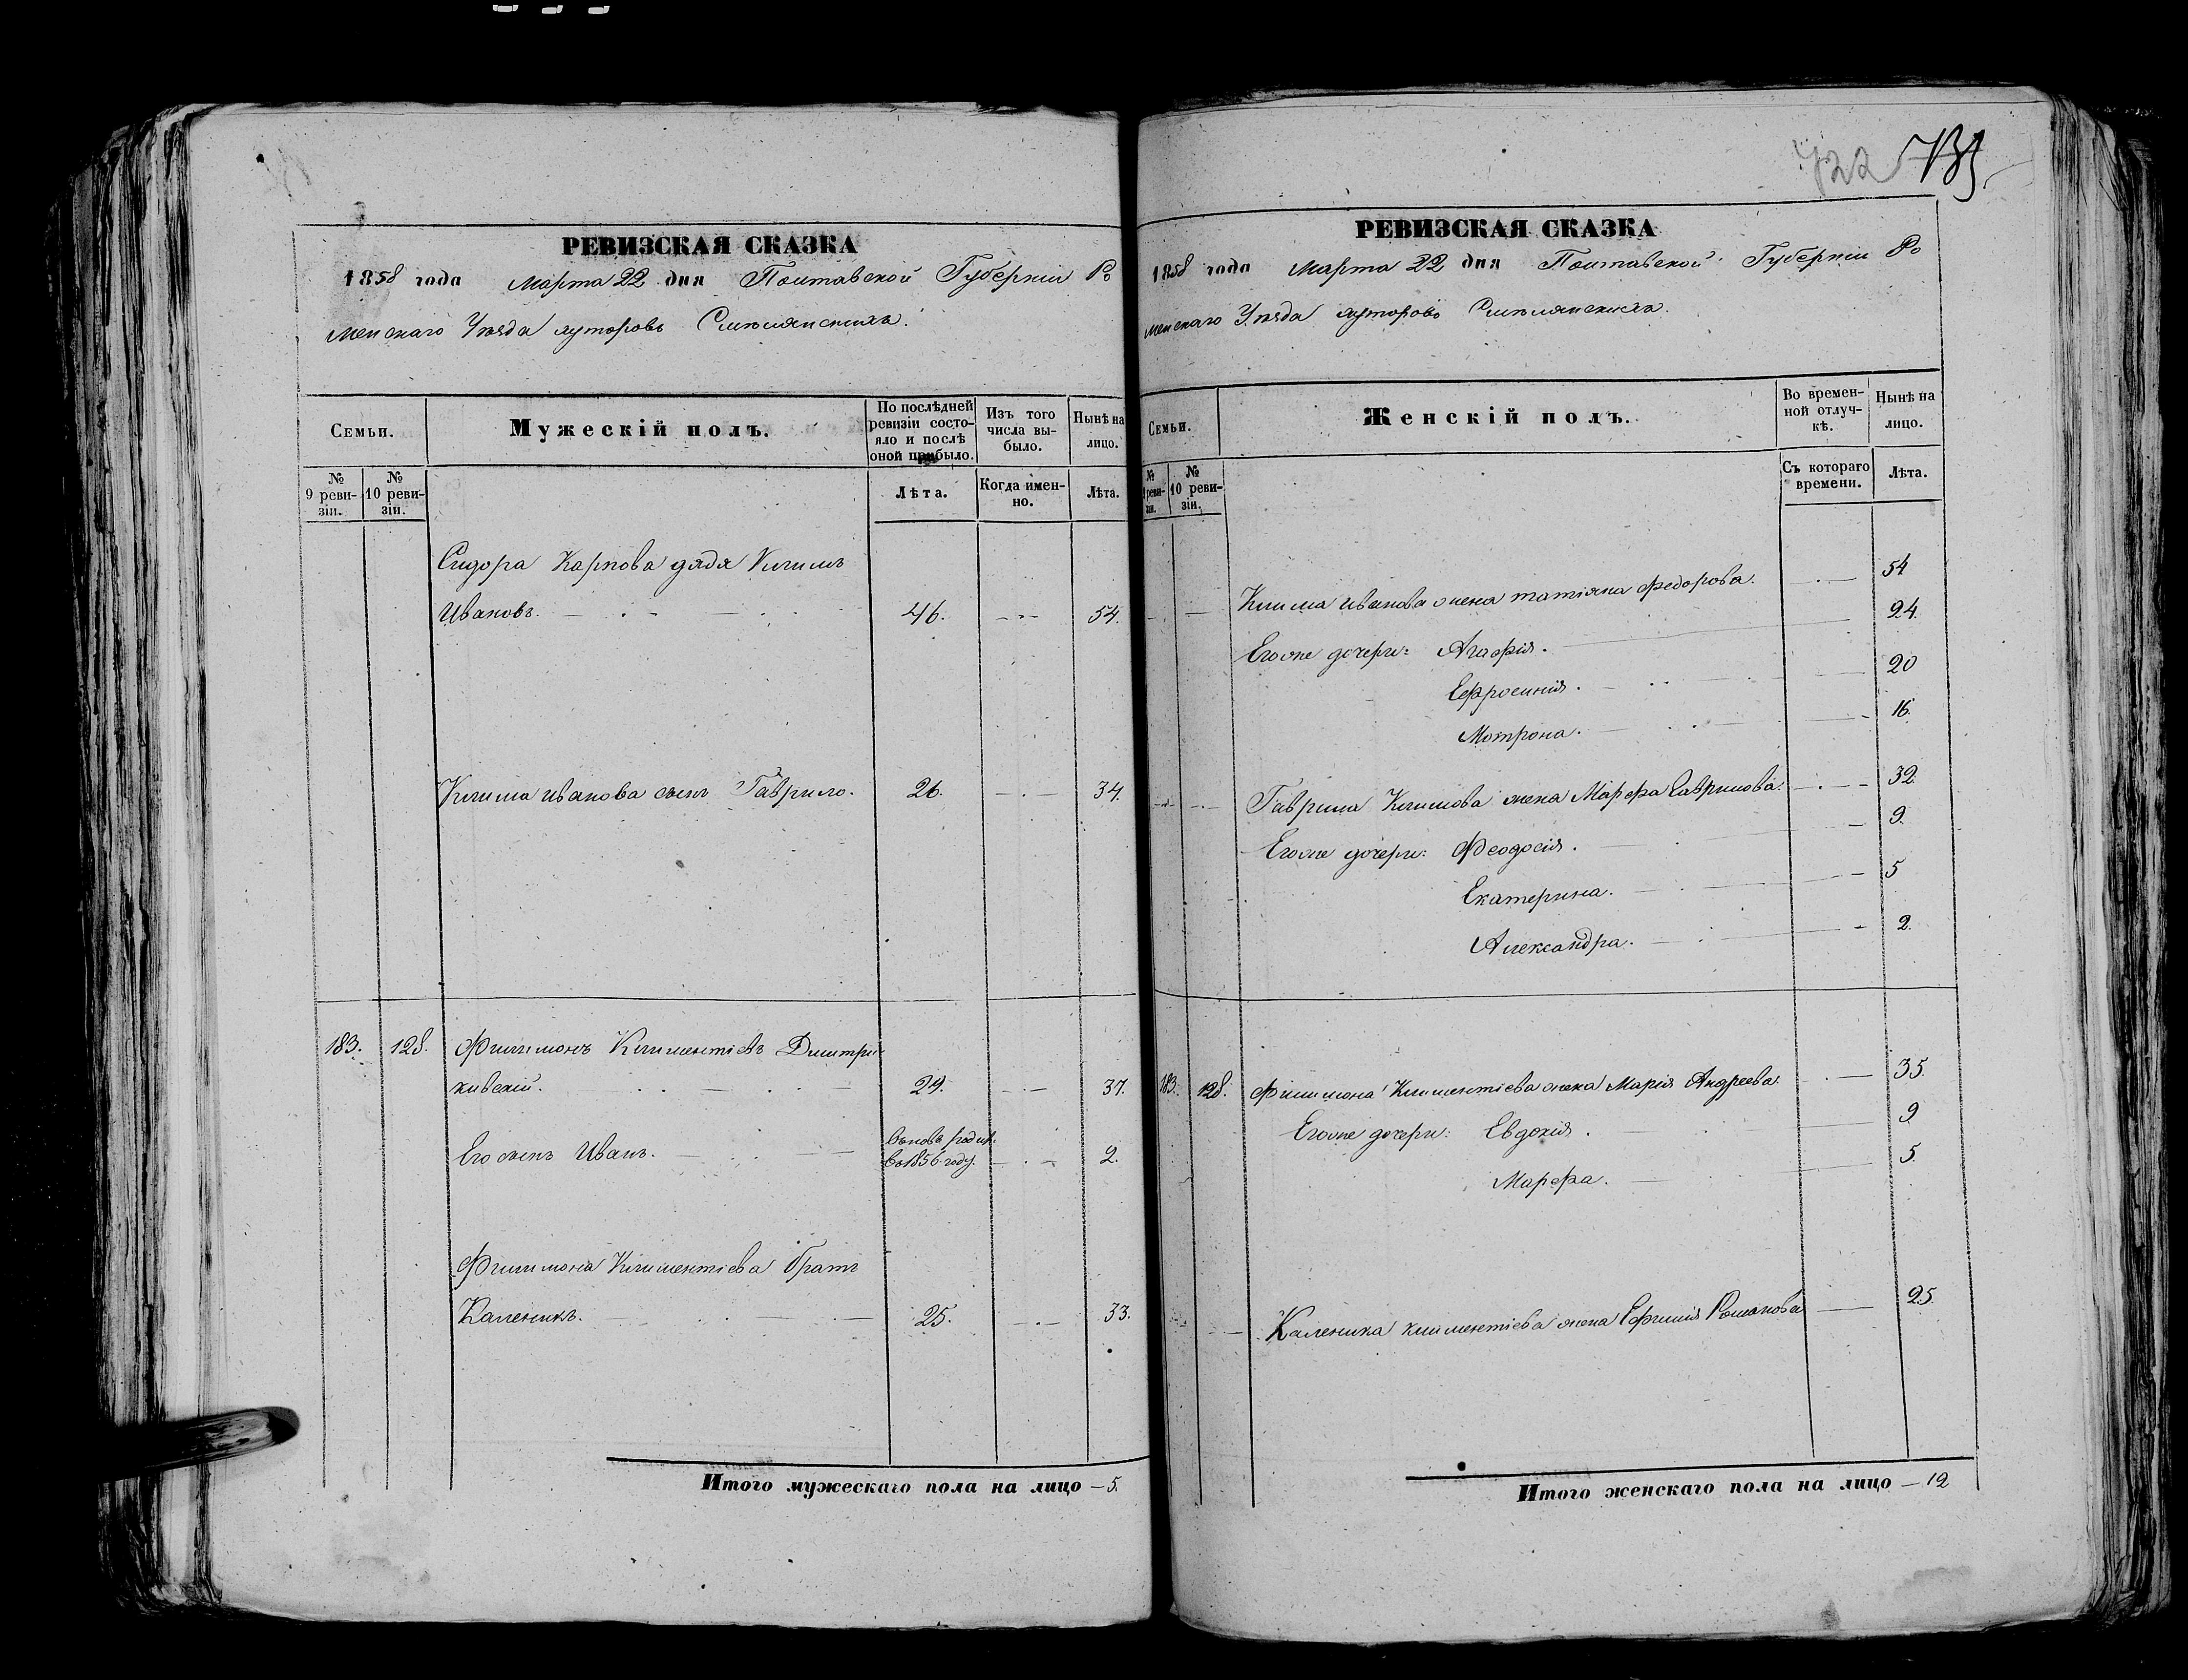 722 731
РЕВИЗСКАЯ СКАЗКА
1858 года Марта 22 дня Полтавской Губерніи Ро
менскаго Уезда хуторовъ
Семьи.
Мужескій полъ.
По послѣдней ревизіи состо-
яло и послѣ
оной прибыло.
Изъ того
числа вы-
было.
Нынѣ на
лицо.
№
9 реви-
зіи.
№
10 реви-
зіи.
Лѣта.
Когда имен-
но.
Лѣта.
Сидора Карпова дядя Климъ
Ивановъ. 46. 54.
Клима Иванова сынъ Гаврило. 26. 34.
183. 128. Филимонъ Климентіевъ Дмитри
ковскій. 29. 37.
Его сынъ Иванъ. вновь родил. 2.
въ 1856 году.
Филимона Климентіева братъ
Каленикъ. 25. 33.
Итого мужескаго пола на лицо — 5.
РЕВИЗСКАЯ СКАЗКА
1858 года Марта 22 дня Полтавской Губерніи Ро
менскаго Уезда хуторовъ
Семьи.
Женскій полъ.
Во времен-
ной отлуч-
кѣ.
Нынѣ на
лицо.
№
9 реви-
зіи.
№
10 реви-
зіи.
Съ котораго
времени.
Лѣта.
Клима Иванова жена Татіяна Федорова. 54
Егоже дочери: Агафія. 24.
Ефросинія. 20
Мотрона. 16.
Гаврила Климова жена Марфа Гаврилова. 32.
Егоже дочери: Феодосія. 9.
Екатерина. 5
Александра. 2.
183. 128. Филимона Климентіева жена Марія Андреева. 35.
Егоже дочери: Евдокія. 9
Марфа. 5.
Каленика Климентіева жена Ефимія Романова 25.
Итого женскаго пола на лицо — 12